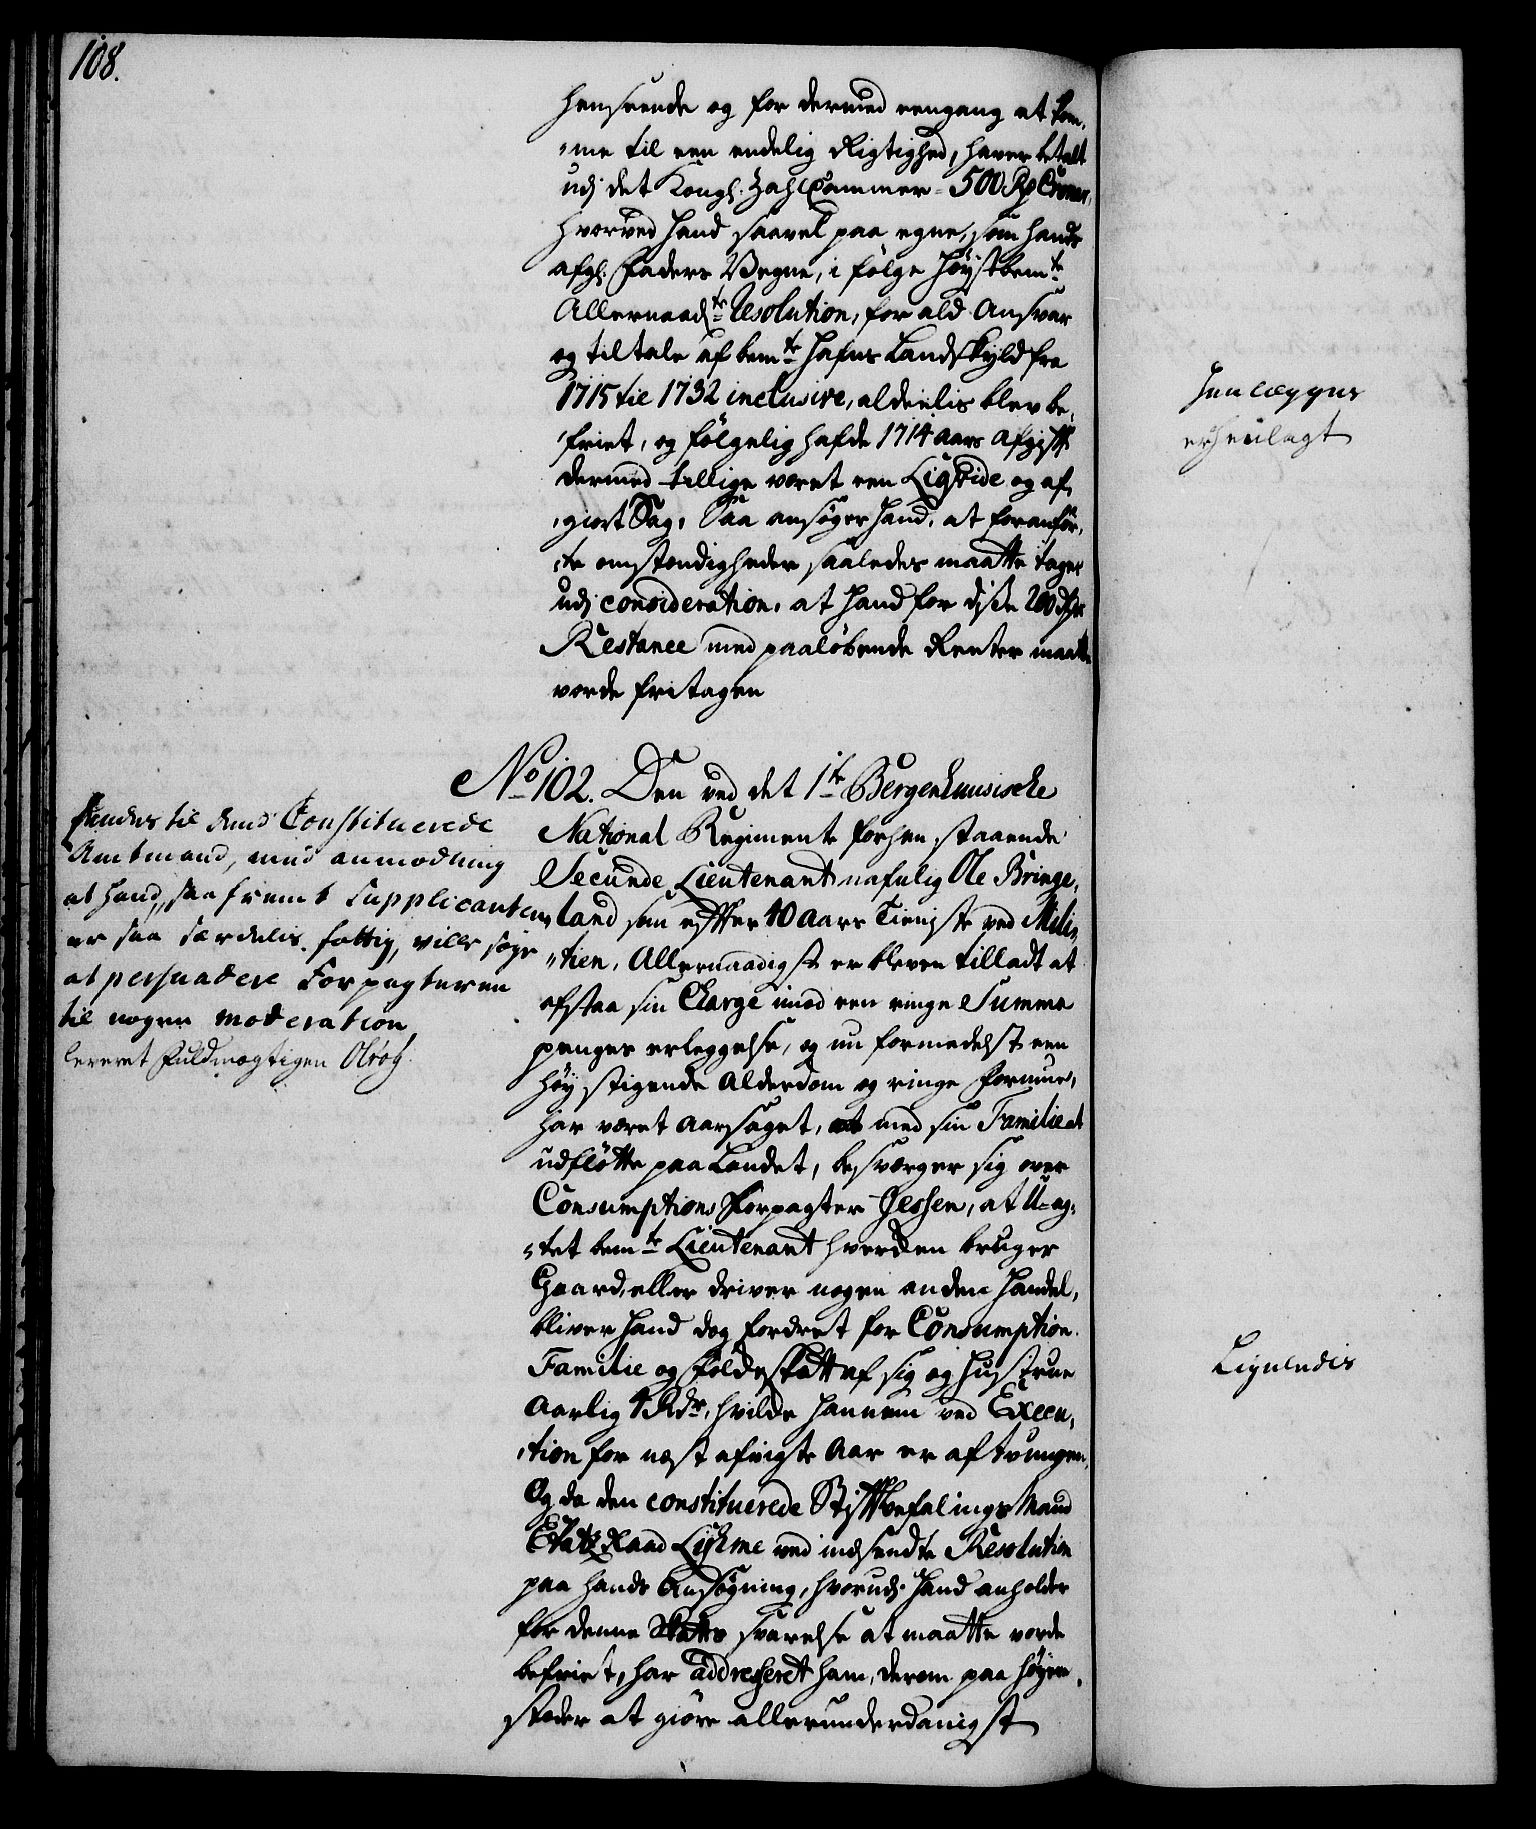 108.
henseende og for dermed eengang at kom,
"me til een endelig Rigtighed, haver betalt
udj det Kongl: Zahl Cammer - 500 Rdr Croner,
hvorved hand saavel paa egne, som hands
afgl: Faders Vegne, i følge høystbemte
Allernaadste Resolution, for ald Ansvar
og tiltale af bemte Hafnes Landskyld fra
1715 til 1732 inclusive, aldeelis blev be,
,friet, og følgelig hafde 1714 aars Afgift
dermed tillige været een Liqvide og af,
,giort Sag, Saa ansøger hand, at foranfør,
,te omstændigheder saaledes maatte tages
udj consideration, at hand for disse 200 Rdrs
Restance med paaløbende Renter maatte
vorde fritagen
No 102. Den ved det 1te Bergenhuusische
National Regiment forhen staaende
Secunde Lieutenant nafnlig Ole Bringe,
"land som efter 40 Aars Tieniste ved Mili,
"tien, Allernaadigst er bleven tilladt at
afstaa sin Charge imod een ringe Summa
penges erleggelse, og nu formedelst een
høy stigende Alderdom og ringe formue,
har været aarsaget, med sin Familie at
udfløtte paa Landet, besværger sig over
Consumptions Forpagter Jessen, at U-ag,
,tet bemte Lieutenant hverken bruger
Gaard, eller driver nogen anden Handel,
bliver hand dog fordret for Consumption.
Familie og Folde skatt af sig og Hustrue
Aarlig 4 Rdr, hvilke hannem ved Execu,
,tion for næst afvigte Aar er aftvungen,
Og da den constituerede Stiftbefalings Mand
Etatz Raad Lyhme ved indsendte Resolution
paa hands Ansøgning, hvorudj hand anholder
for denne Skatts svarelse at maatte vorde
befriet, har addresseret ham, derom paa høyere
stæder at giøre allerunderdanigst
Sendes til dend Constituerede
Amtmand, med anmodning
at hand, saafremt Supplicanten
er saa særdelis fattig, ville søge
at persuadere Forpagteren
til nogen moderation
leveret Fuldmægtigen Olrog.
Henlægges
er henlagt
Ligeledis